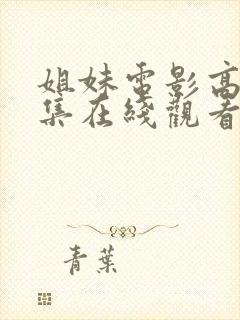 姐妹電影高
集在綫觀看
青葉